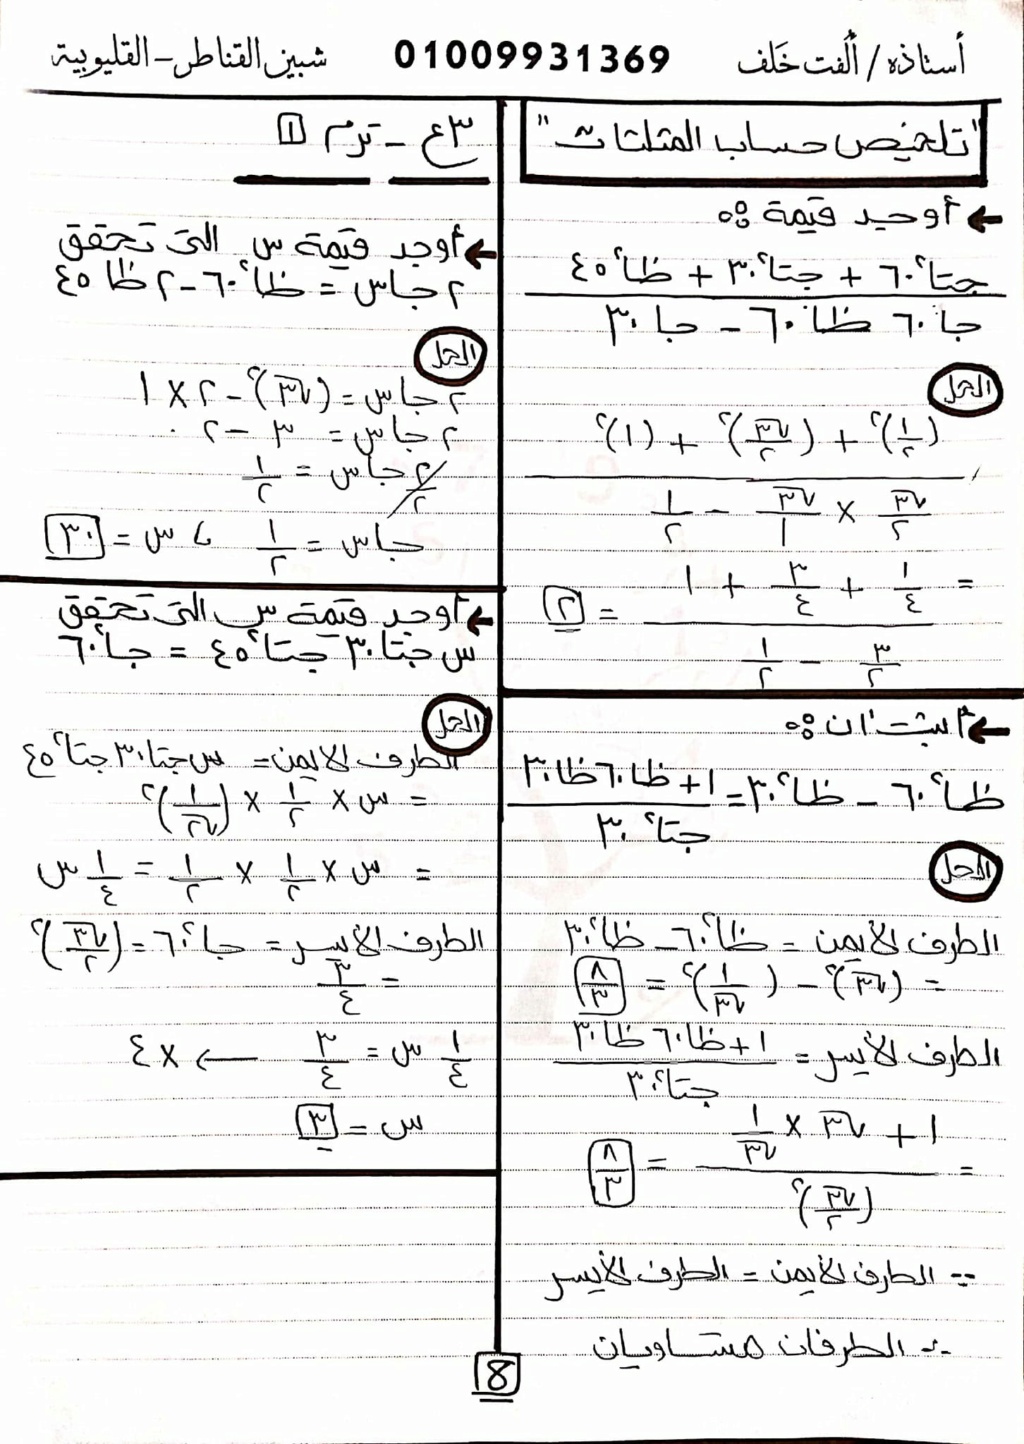 أستاذه / ألفت خلف 01009931369 شبين القناطر - القليوبية
"تلخيص حساب المثلثات"
← أوجد قيمة :
جتا²٦٠ + جتا²٣٠ + ظا²٤٥
جا٦٠ ظا٦٠ - جا٣٠
الحل
(١/٢)² + (√٣/٢)² + (١)²
√٣/٢ × √٣/١ - ١/٢
= ١/٤ + ٣/٤ + ١
= ٢
٣/٢ - ١/٢
← أثبت ان :
ظا²٦٠ - ظا²٣٠ = ١ + ظا٦٠ ظا٣٠
جتا²٣٠
الحل
الطرف الأيمن = ظا²٦٠ - ظا²٣٠
= (√٣)² - (١/√٣)² = ٨/٣
الطرف الأيسر = ١ + ظا٦٠ ظا٣٠
جتا²٣٠
= ١ + √٣ × ١/√٣ = ٨/٣
(√٣/٢)²
∵ الطرف الأيمن = الطرف الأيسر
∴ الطرفان متساويان
٣ع - ترم ١
← أوجد قيمة س التى تحقق
٢ جاس = ظا²٦٠ - ٢ ظا ٤٥
الحل
٢ جاس = (√٣)² - ٢ × ١
٢ جاس = ٣ - ٢
٢/٢ جاس = ١/٢
جاس = ١/٢ ، س = ٣٠
← أوجد قيمة س التى تحقق
س جتا٣٠ جتا²٤٥ = جا²٦٠
الحل
الطرف الايمن = س جتا٣٠ جتا²٤٥
= س × ١/٢ × (١/√٢)²
= س × ١/٢ × ١/٢ = ١/٤ س
الطرف الأيسر = جا²٦٠ = (√٣/٢)²
= ٣/٤
١/٤ س = ٣/٤ ← × ٤
س = ٣
8